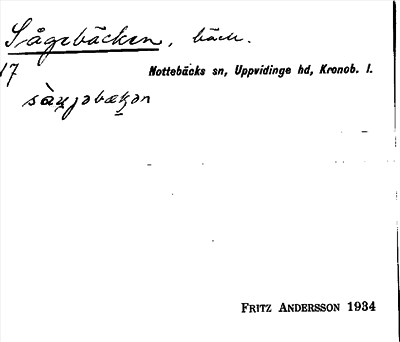 Sågebäcken, bäck.
17
Nottebäcks sn, Uppvidinge hd, Kronob. l.
FRITZ ANDERSSON 1934